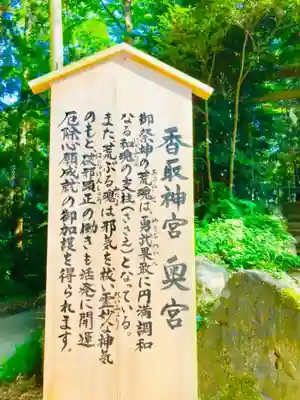 香取神宮 奥宮
御祭神の荒魂は勇武果敢に円満調和
なる和魂の支柱(ささえ)となっている。
また、荒ぶる魂は邪気を祓い霊妙な神気
のもと破邪顕正の働きも活発に開運
厄除心願成就の御加護を得られます。